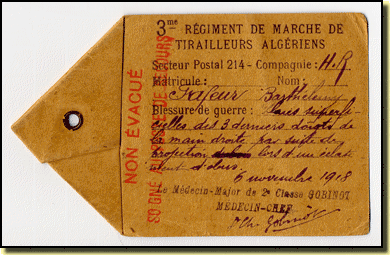 3me RÉGIMENT DE MARCHE DE
TIRAILLEURS ALGÉRIENS
Secteur Postal 214 - Compagnie: H.R
Matricule: Nom:
Safeur Barthelemy
Blessure de guerre: superfi
cielles des 3 derniers doigts de
la main droite par suite de
projection lors d'un éclat
ement d'obus.
6 novembre 1918
Le Médecin-Major de 2e Classe GOBINOT
MEDECIN-CHEF
NON ÉVACUÉ
SOIGNÉ
JOURS